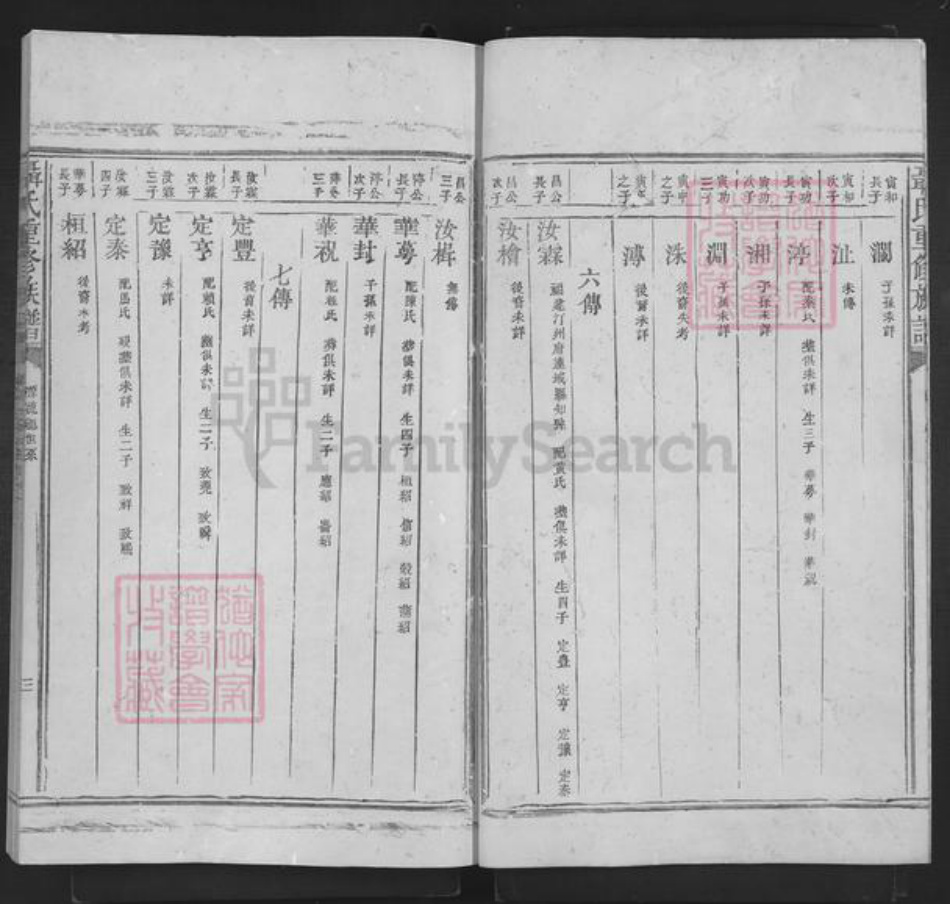 寅和長子 瀾 子孫未詳
寅和次子 沚 未傳
寅功長子 渟 配秦氏 塟俱未詳 生三子 華蕚 華封 華祝
寅功次子 湘 子孫未詳
寅功三子 淵 子孫未詳
洙 後裔失考
之子 溥 後裔未詳
六傳
昌公長子 汝霖 福建汀州府連城縣知縣 配黃氏 塟俱未詳 生四子 定豐 定亨 定豫 定泰
昌公次子 汝檜 後裔未詳
昌公三子 汝楫 無傳
渟公長子 華蕚 配陳氏 塟俱未詳 生四子 桓紹 信紹 毅紹 肅紹
渟公次子 華封 子孫未詳
三子 華祝 配 氏 塟俱未詳 生二子 應紹 紹
七傳
汝霖長子 定豐 後裔未詳
汝霖次子 定亨 配賴氏 塟俱未詳 生二子 致堯 致舜
汝霖三子 定豫 未詳
汝霖四子 定泰 配馬氏 塟俱未詳 生二子 致祥 致熙
華蕚長子 桓紹 後裔未考
聶氏重修族譜
三
聶氏重修族譜
FamilySearch